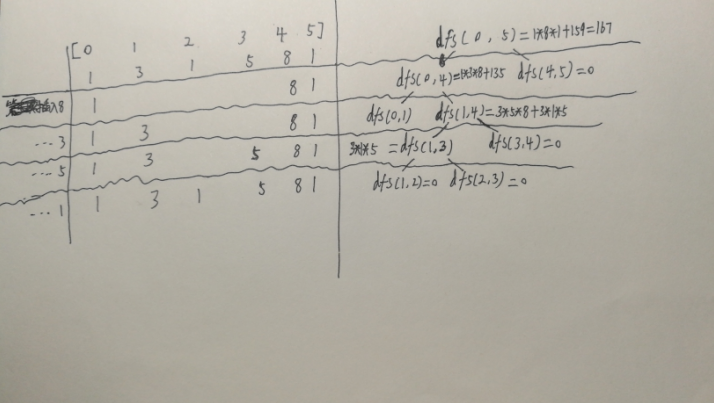 [0 1 2 3 4 5]
1 3 1 5 8 1
dfs(0, 5)=1*8*1+159=167
插入8 1 8 1
dfs(0,4)=1*3*8+135 dfs(4,5)=0
...3 1 3 8 1
dfs(0,1) dfs(1,4)=3*5*8+3*1*5
...5 1 3 5 8 1
3*1*5 =dfs(1,3) dfs(3,4)=0
...1 1 3 1 5 8 1
dfs(1,2)=0 dfs(2,3)=0